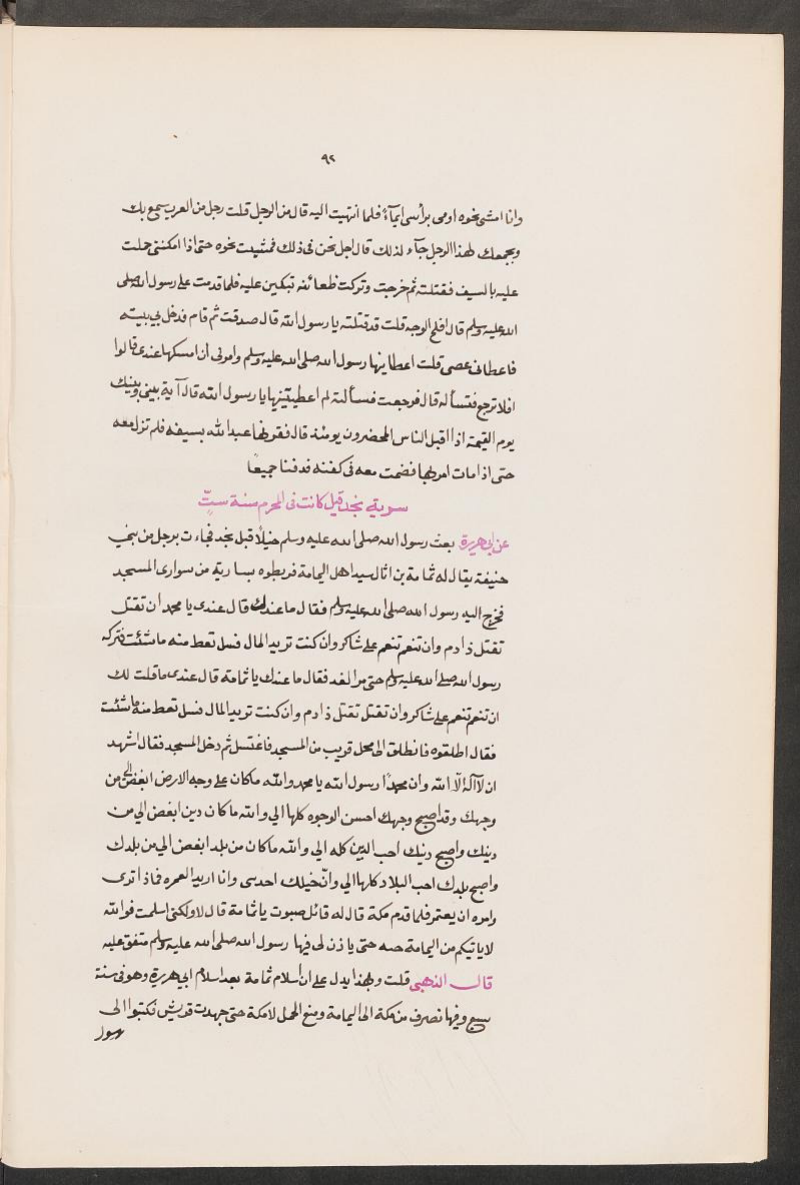 ٩٢
وانا امشى نحوه اومى برأسى ايمآءً فلما انتهيت اليه قال من الرجل قلت رجل من العرب سمع بك
وبجمعك لهذا الرجل جآء لذلك قال اجل نحن فى ذلك فمشيت نحوه حتى اذا امكننى حملت
عليه بالسيف فقتلته ثم خرجت وتركت ظعائنه تبكين عليه فلما قدمت على رسول الله صلى
الله عليه وسلم قال افلح الوجه قلت قد قتلته يا رسول الله قال صدقت ثم قام فدخل بى بيته
فاعطانى عصى قلت اعطاينها رسول الله صلى الله عليه وسلم وامرنى ان امسكها عندى قالوا
افلا ترجع فتسأله قال فرجعت فسألته لم اعطيتنيها يا رسول الله قال آية بينى وبينك
يوم القيمة اذا اقبل الناس المحضرون يومئذ قال فقرنها عبد الله بسيفه فلم تزل معه
حتى اذا مات امر بها فضمت معه فى كفنه فدفنا جميعًا
سرية نجد قيل كانت فى المحرم سنة ستّ
عن ابى هريرة بعث رسول الله صلى الله عليه وسلم خيلاً قبل نجد فجاءت برجل من بنى
حنيفة يقال له ثمامة بن اثال سيد اهل اليمامة فربطوه بسارية من سوارى المسجد
فخرج اليه رسول الله صلى الله عليه وسلم فقال ما عندك قال عندى يا محمد ان تقتل
تقتل ذا دم وان تنعم تنعم على شاكر وان كنت تريد المال فسل تعط منه ما شئت فتركه
رسول الله صلى الله عليه وسلم حتى مر الغد فقال ما عندك يا ثمامة قال عندى ما قلت لك
ان تنعم تنعم على شاكر وان تقتل تقتل ذا دم وان كنت تريد المال فسل تعط منه ما شئت
فقال اطلقوه فانطلق الى محل قريب من المسجد فاغتسل ثم دخل المسجد فقال اشهد
ان لا آله الّا الله وان محمدًا رسول الله يا محمد والله ما كان على وجه الارض ابغض الى من
وجهك وقد اصبح وجهك احسن الوجوه كلها الى والله ما كان دين ابغض الى من
دينك واصبح دينك احب الدين كله الى والله ما كان من بلد ابغض الى من بلدك
واصبح بلدك احب البلاد كلها الى وانّ خيلك اخذتنى وانا اريد العمره فماذا ترى
وامره ان يعتمر فلما قدم مكة قال له قائل صبوت يا ثمامة قال لا ولكنى اسلمت فوالله
لا ياتيكم من اليمامة حبه حتى ياذن لى فيها رسول الله صلى الله عليه وسلم متفق عليه
قال الذهبى قلت وبهذا يدل على ان اسلام ثمامة بعد اسلام ابى هريرة وهو فى سنة
سبع وفيها نصرف من مكة الى اليمامة ومنع الحمل لامكة حتى جهدت قريش فكتبوا الى
رسول